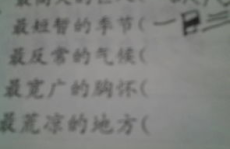 最短暂的季节(一日三
最反常的气候(
最宽广的胸怀(
最荒凉的地方(